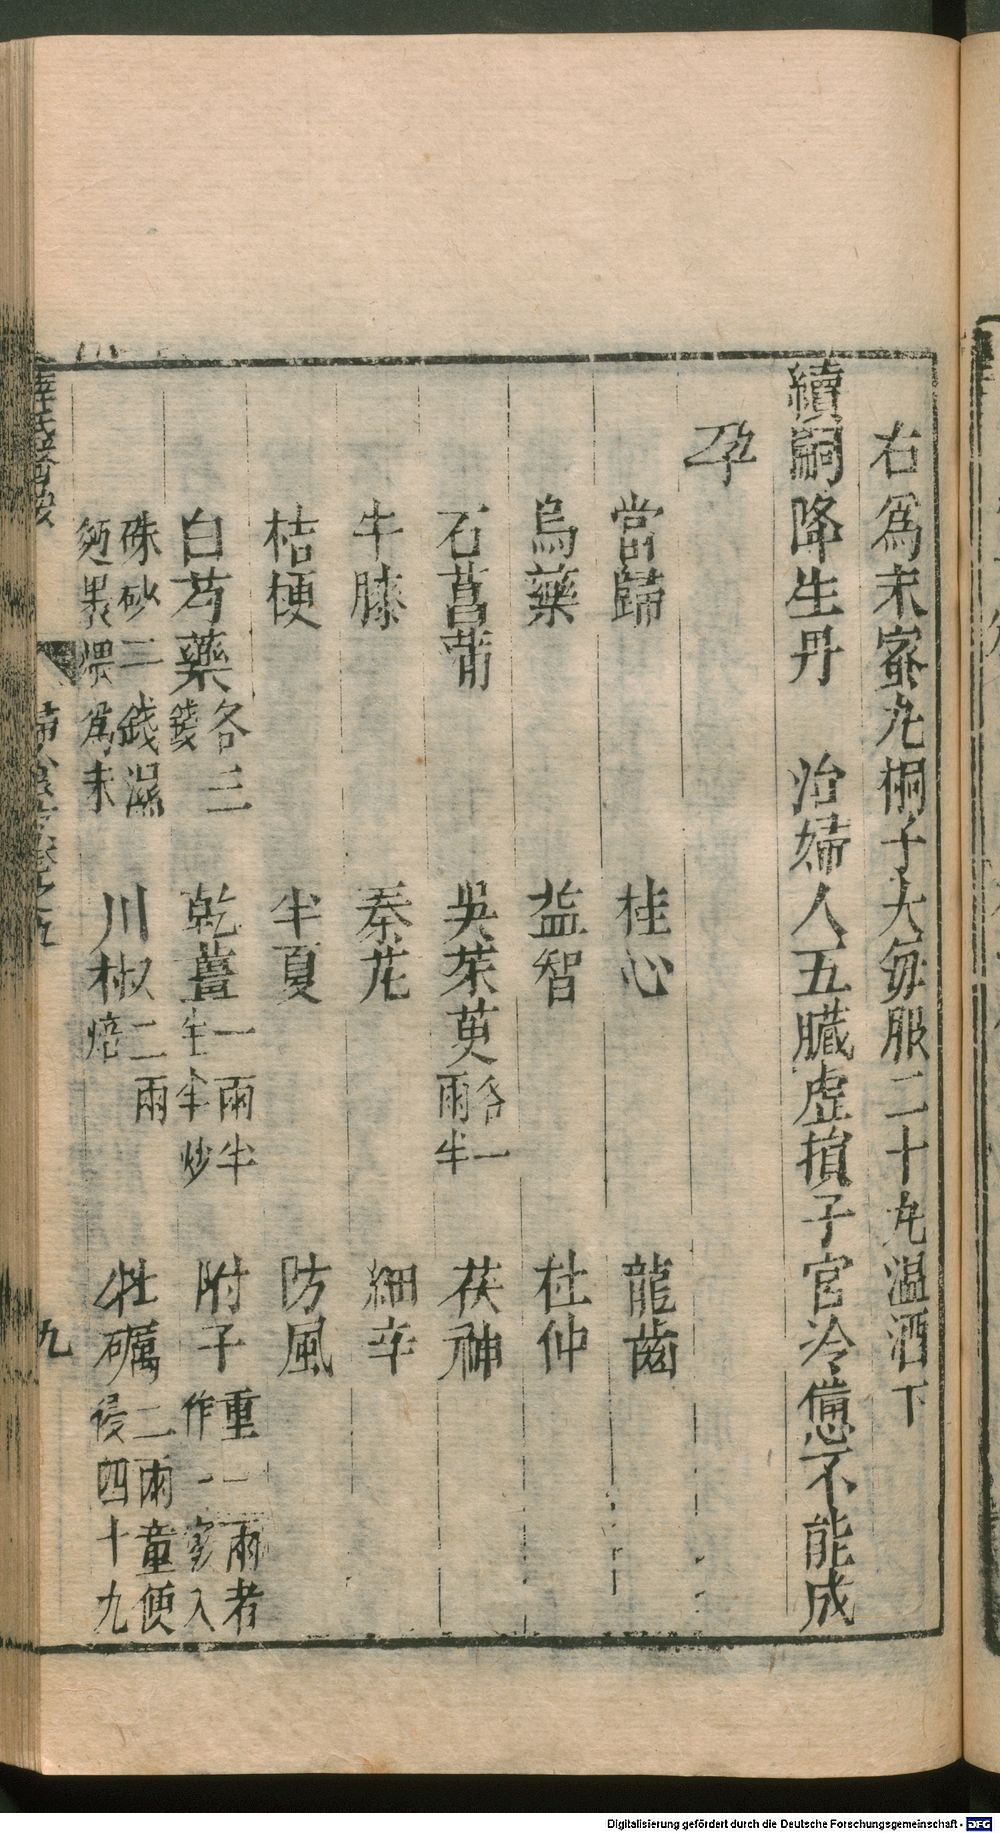 右爲末蜜丸桐子大每服二十丸温酒下
續嗣降生丹　治婦人五臟虛損子宮冷憊不能成
孕
當歸　桂心　龍齒
烏藥　益智　杜仲
石菖蒲　吳茱萸各一兩半　茯神
牛膝　秦芃　細辛
桔梗　半夏　防風
白芍藥各三錢　乾薑一兩半生半炒　附子重一兩者作一竅入
硃砂二錢濕麪裹煨爲末　川椒二兩焙　牡礪二兩童便侵四十九
九
Digitalisierung gefördert durch die Deutsche Forschungsgemeinschaft - DFG